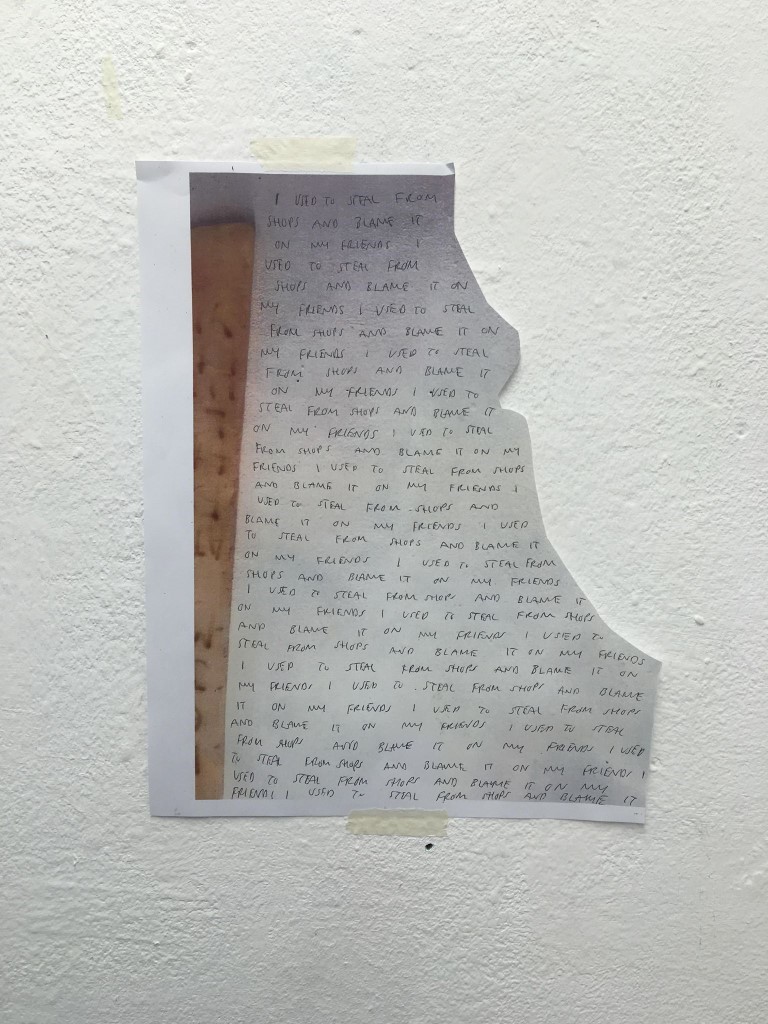 I USED TO STEAL FROM
SHOPS AND BLAME IT
ON MY FRIENDS I
USED TO STEAL FROM
SHOPS AND BLAME IT ON
MY FRIENDS I USED TO STEAL
FROM SHOPS AND BLAME IT ON
MY FRIENDS I USED TO STEAL
FROM SHOPS AND BLAME IT
ON MY FRIENDS I USED TO
STEAL FROM SHOPS AND BLAME IT
ON MY FRIENDS I USED TO STEAL
FROM SHOPS AND BLAME IT ON MY
FRIENDS I USED TO STEAL FROM SHOPS
AND BLAME IT ON MY FRIENDS I
USED TO STEAL FROM SHOPS AND
BLAME IT ON MY FRIENDS I USED
TO STEAL FROM SHOPS AND BLAME IT
ON MY FRIENDS I USED TO STEAL FROM
SHOPS AND BLAME IT ON MY FRIENDS
I USED TO STEAL FROM SHOPS AND BLAME IT
ON MY FRIENDS I USED TO STEAL FROM SHOPS
AND BLAME IT ON MY FRIENDS I USED TO
STEAL FROM SHOPS AND BLAME IT ON MY FRIENDS
I USED TO STEAL FROM SHOPS AND BLAME IT ON
MY FRIENDS I USED TO STEAL FROM SHOPS AND BLAME
IT ON MY FRIENDS I USED TO STEAL FROM SHOPS
AND BLAME IT ON MY FRIENDS I USED TO STEAL
FROM SHOPS AND BLAME IT ON MY FRIENDS I USED
TO STEAL FROM SHOPS AND BLAME IT ON MY FRIENDS I
USED TO STEAL FROM SHOPS AND BLAME IT ON MY
FRIENDS I USED TO STEAL FROM SHOPS AND BLAME IT